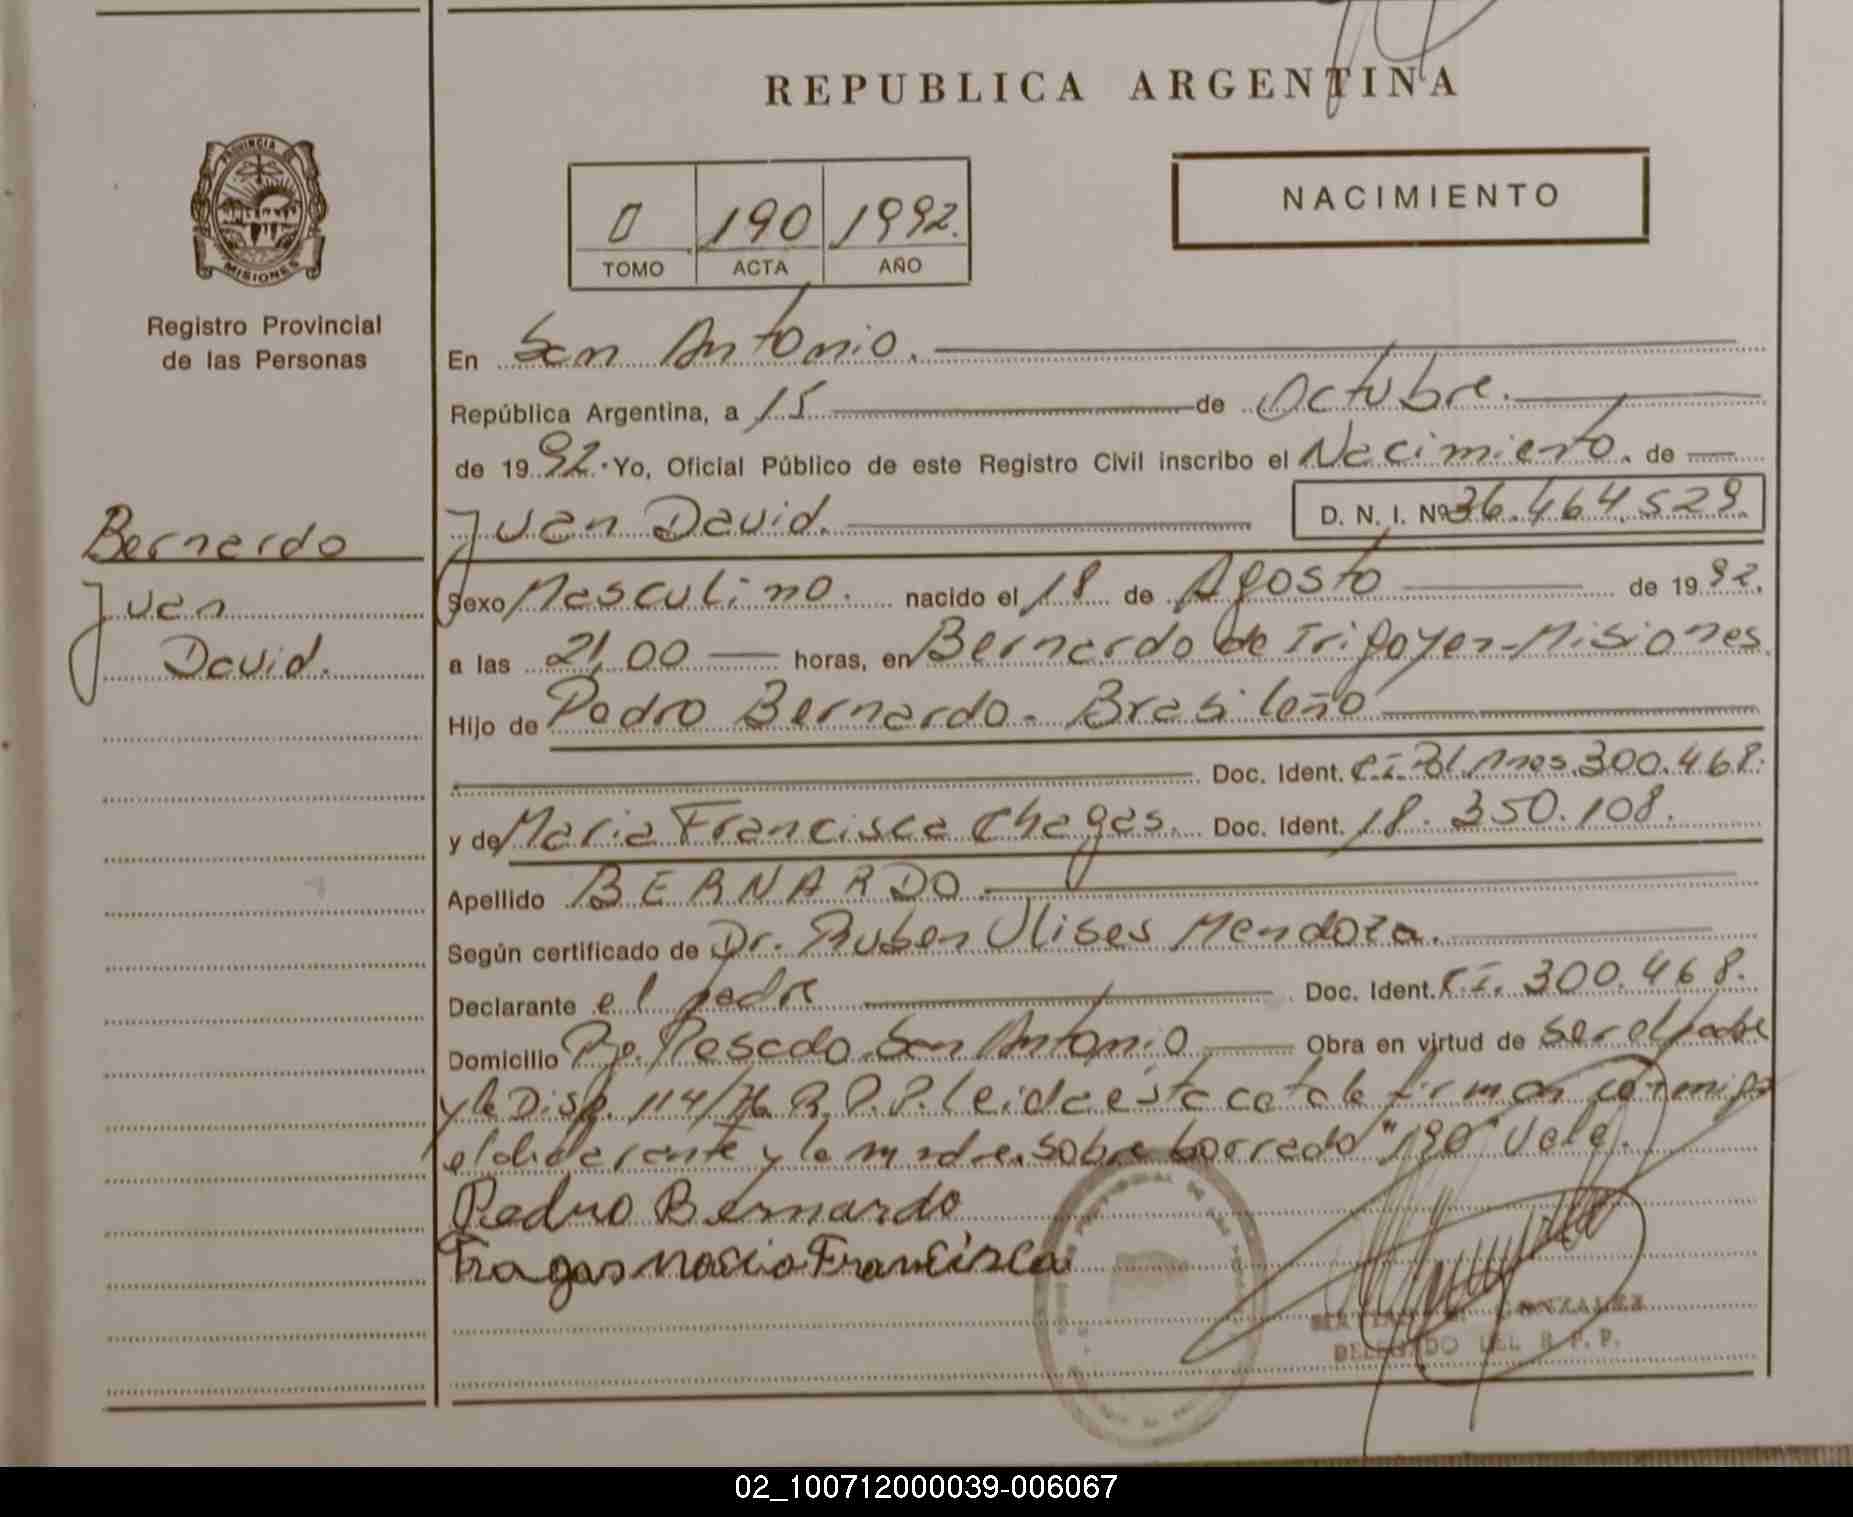 REPUBLICA ARGENTINA
PROVINCIA DE
MISIONES
Registro Provincial
de las Personas
0 190 1992.
TOMO ACTA AÑO
NACIMIENTO
En San Antonio.
República Argentina, a 15 de Octubre.
de 1992. Yo, Oficial Público de este Registro Civil inscribo el Nacimiento. de
Juan David. D. N. I. Nº 36.464.529.
Bernardo
Juan
David.
Sexo Masculino. nacido el 18 de Agosto de 1992.
a las 21,00 horas, en Bernardo de Irigoyen-Misiones
Hijo de Pedro Bernardo. Brasileño
Doc. Ident. C.I. Pol. Mnes. 300.468.
y de Maria Francisca Chagas. Doc. Ident. 18.350.108.
Apellido BERNARDO
Según certificado de Dr. Ruben Ulises Mendoza.
Declarante el padre Doc. Ident. C.I. 300.468.
Domicilio Rosado San Antonio Obra en virtud de ser el padre
y la Disp. 114/76 R.P.P. leida esta acta la firman conmigo
el declarante y la madre. sobre borrado "190" Vale.
Pedro Bernardo
Maria Francisca
GONZALEZ
DELEGADO DEL R.P.P.
02_100712000039-006067